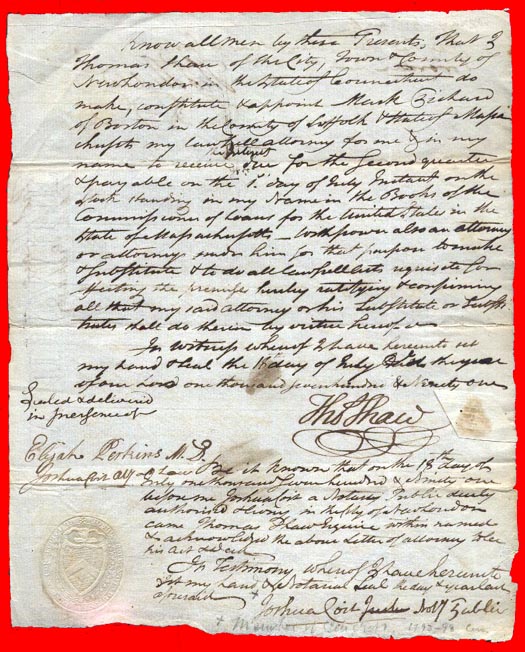 Know all Men by these Presents, That I
Thomas Shaw of the City, Town & County of
New London in the State of Connecticut do
make, constitute & appoint Mark Pickard
of Boston in the County of Suffolk & State of Massa
chusetts my lawfull attorney for me & in my
name to receive Interest due for the Second quarter
& payable on the 1st day of July Instant on the
Stock standing in my Name in the Books of the
Commissioner of Loans for the United States in the
State of Massachusetts with power also an attorney
or attornies under him for that purpose to make
& substitute & to do all lawfull acts requisite for
effecting the premises hereby ratifying & confirming
all that my said attorney or his Substitute or Substi
tutes shall do therein by virtue hereof
In Witness whereof I have hereunto set
my hand & Seal the 18th day of July the year
of our Lord one thousand seven hundred & Ninety one
Sealed & delivered
in presence of
Thos Shaw
Elijah Perkins
Joshua Coit
Be it known that on the 18th day of
July one thousand seven hundred & Ninety one
before me Joshua Coit a Notary Public duely
authorised & living in the City of New London
came Thomas Shaw Esquire within named
& acknowledged the above Letter of attorney to be
his Act & Deed
In Testimony whereof I have hereunto
set my hand & Notarial Seal the day & year last
aforesaid
Joshua Coit Noty Public
+ Member of Congress 1793-98 Conn.